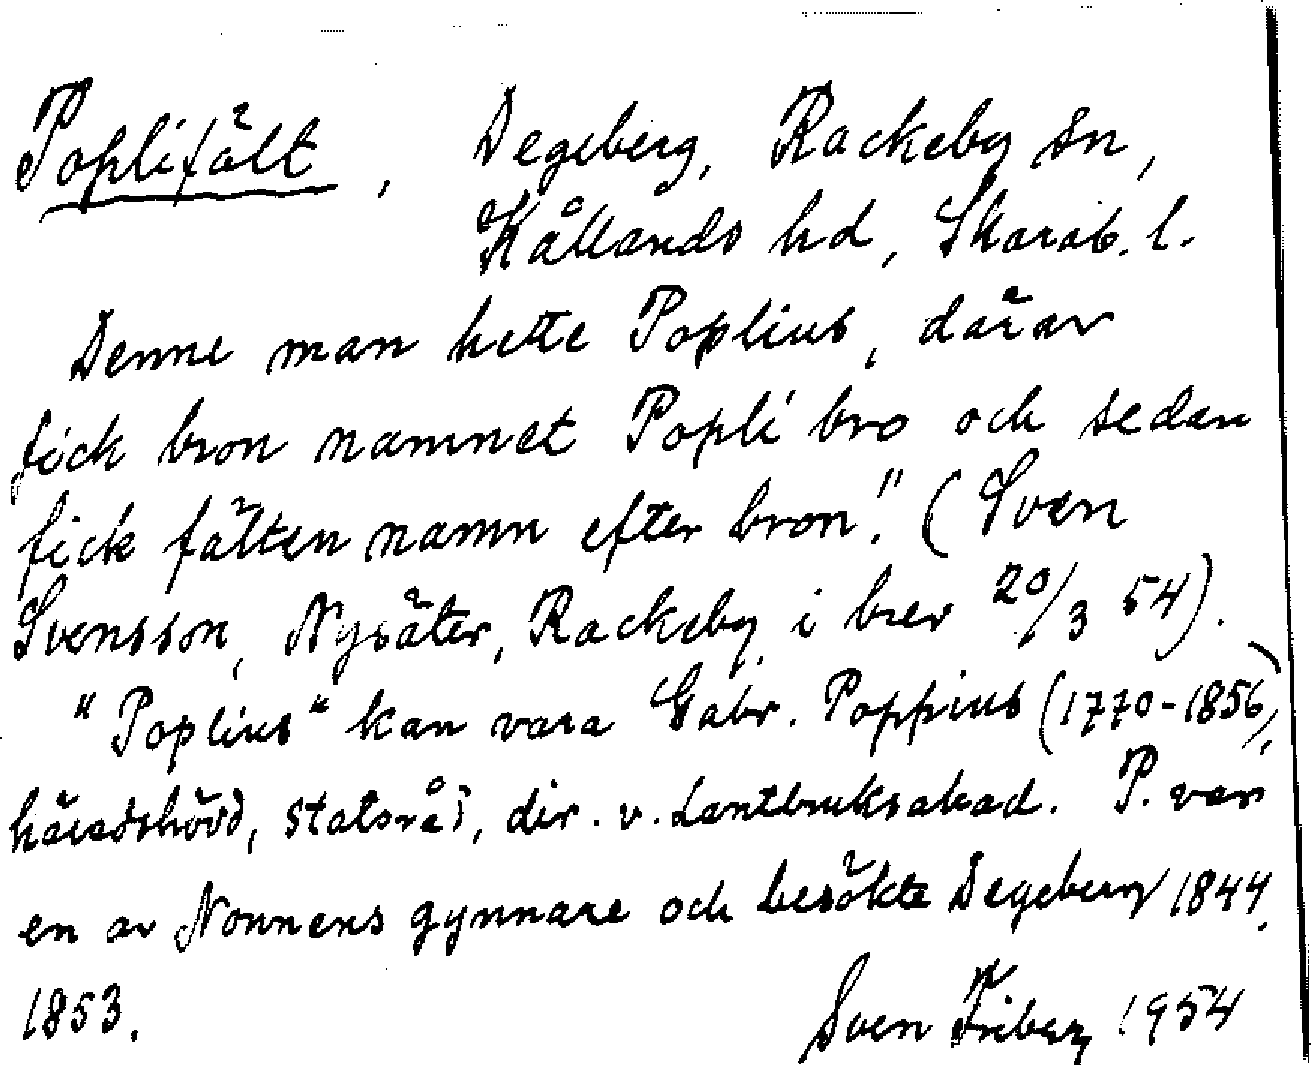 Poplifält, Degeberg, Rackeby sn,
Kållands hd, Skarab. l.
Denne man hette Poplius, därav
fick bron namnet Popli bro och sedan
fick fälten namn efter bron." (Sven
Svensson, Nysäter, Rackeby i brev 20/3 54).
"Poplius" kan vara Gabr. Poppius (1770-1856),
häradshövd, statsråd, dir. v. Lantbruksakad. P. var
en av Nonnens gynnare och besökte Degeberg 1844,
1853.
Sven Friberg 1954